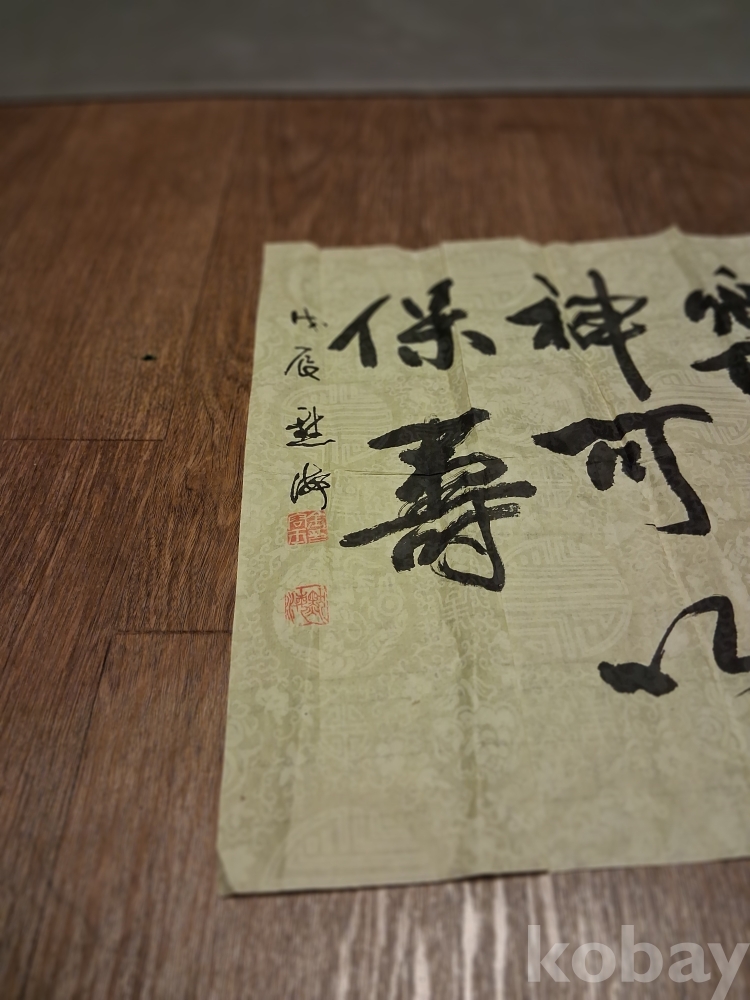 神可以
保壽
戊辰 黙海
kobay